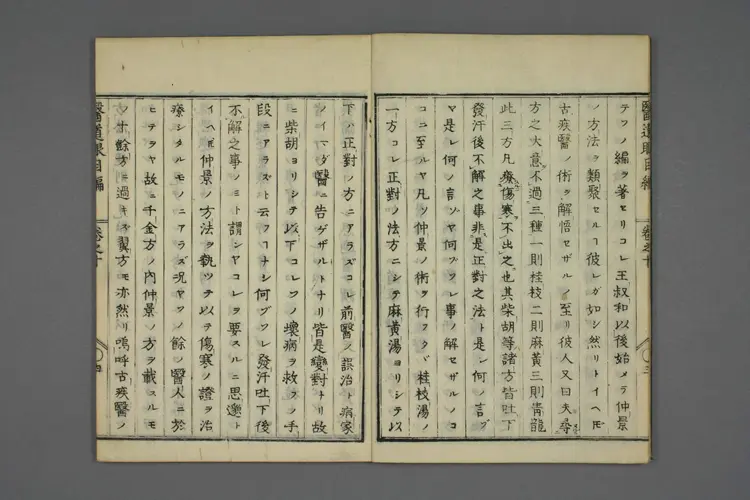 テソノ編ヲ著セリコレ王叔和以後始メテ仲景
ノ方法ヲ類聚セルヿ彼レガ如シ然リトイヘ𪜈
古疾醫ノ術ヲ解悟セザルノ至リ彼人又曰夫尋
方之大意不過三種一則桂枝二則麻黃三則青龍
此三方凡療傷寒不出之也其柴胡等諸方皆吐下
發汗後不解之事非是正對之法ト是レ何ノ言ゾ
ヤ是レ何ノ言ソヤ何ゾワレ事ノ解セザルノコ
コニ至ルヤ凡ソ仲景ノ術ヲ行フヲバ桂枝湯ノ
一方コレ正對ノ法方ニシテ麻黃湯ヨリシテ以
下ハ正對ノ方ニアラズコレ前醫ノ誤治ト病家
ノイマダ醫ニ告ゲザルトナリ皆是變對ナリ故
ニ柴胡ヨリシテ以下コレワノ壞病ヲ救フノ手
段ニアラズト云フヿナシ何ゾワレ發汗吐下後
不解之事ノミト謂シヤコレヲ要スルニ思邈ト
イヘ𪜈仲景ノ方法ヲ執ツテ以テ傷寒ノ證ヲ治
療シタルモノニアラズ況ヤワノ餘ノ醫人ニ於
ヒテヲヤ故ニ千金方ノ內仲景ノ方ヲ載スルモ
ノ十餘方ニ過キズ翼方モ亦然リ嗚呼古疾醫ノ
醫道眼目編
卷之十
四